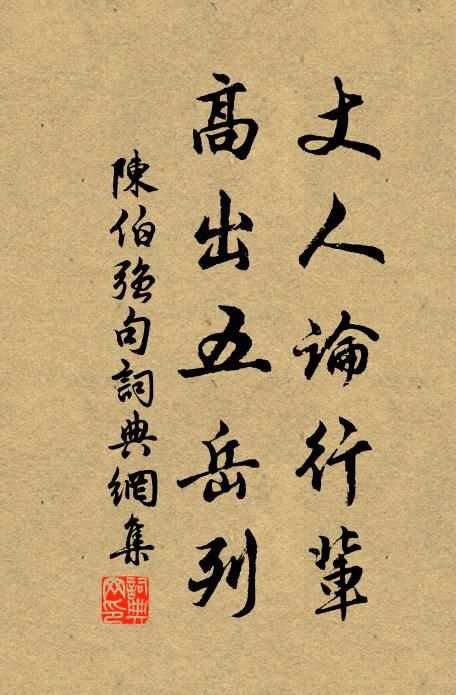 丈人論行輩
高出五岳列
陳伯強句詞典網集
詞典网印